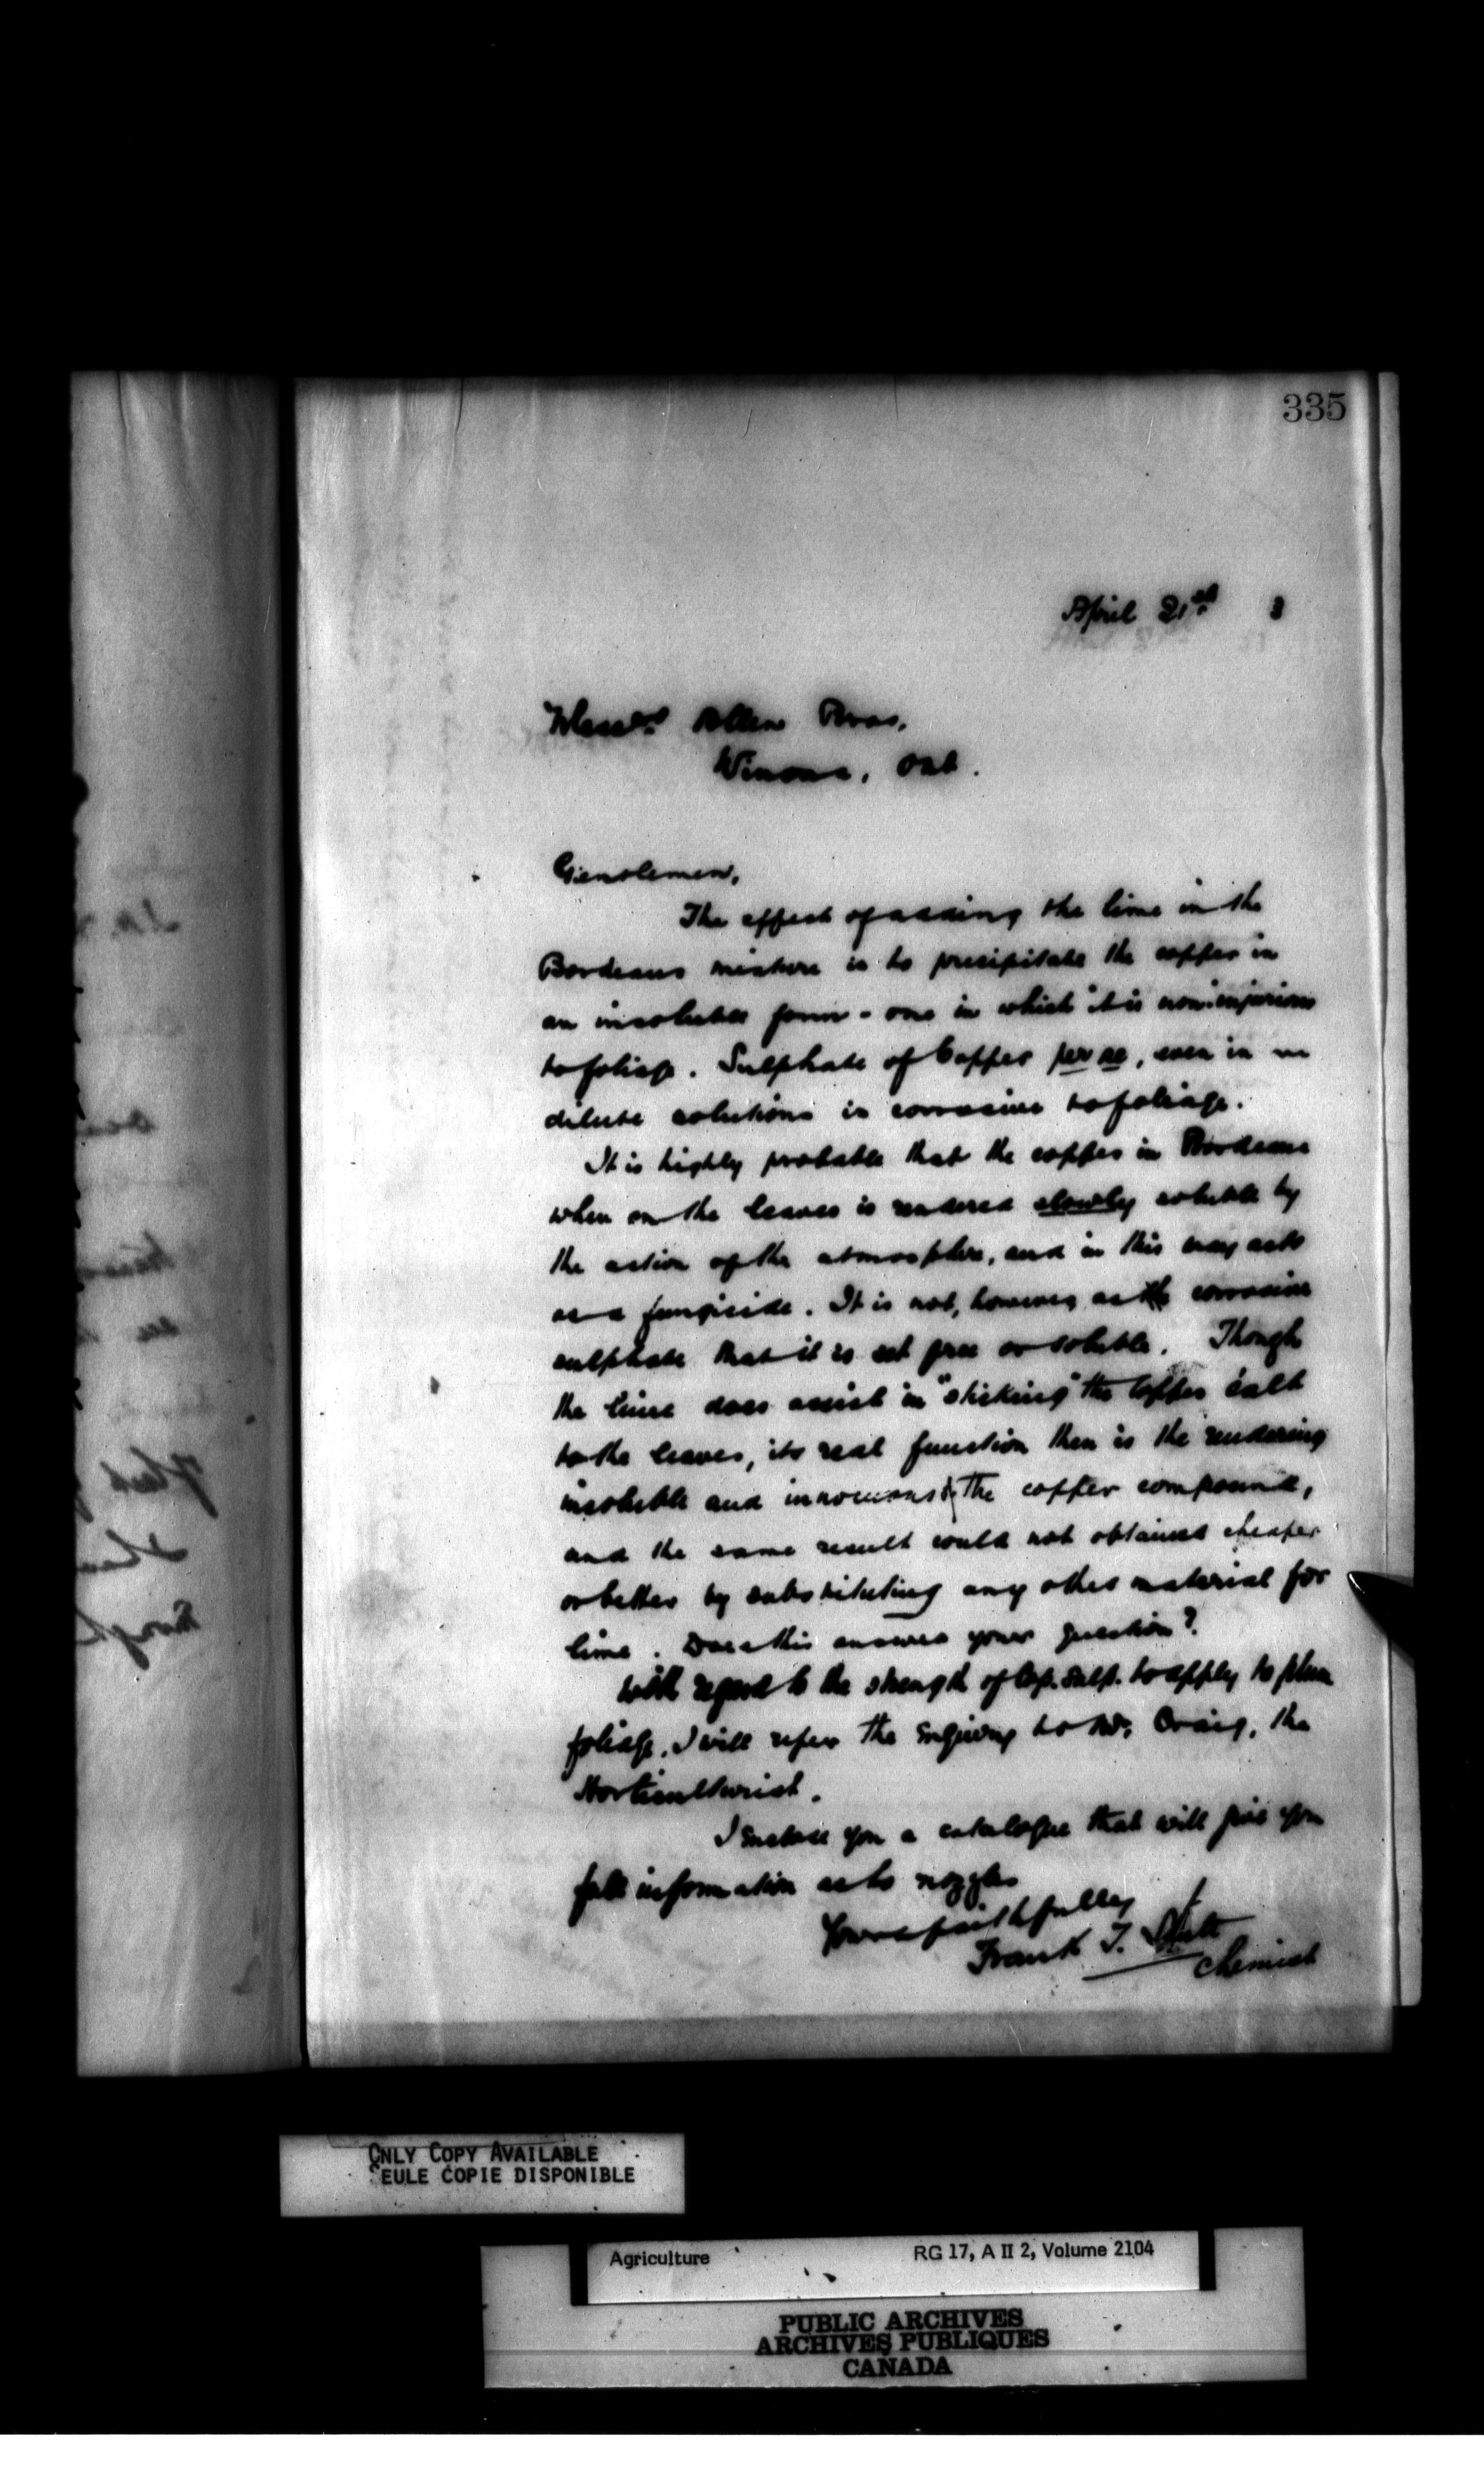 335
April 21st 3
Messrs. Allen Bros.
Winona, Ont.
Gentlemen,
The effect of adding the lime in the
Bordeaux mixture is to precipitate the copper in
an insoluble form - one in which it is non-injurious
to foliage. Sulphate of Copper per se, even in
dilute solutions is corrosive to foliage.
It is highly probable that the copper in Bordeaux
when on the leaves is rendered slowly soluble by
the action of the atmosphere, and in this way acts
as a fungicide. It is not, however as the corrosive
sulphate that it is set free or soluble. Though
the lime does assist in "sticking" the Copper salt
to the leaves, its real function then is the rendering
insoluble and innocuous of the copper compound,
and the same result could not obtained cheaper
or better by substituting any other material for
lime. Does this answer your question?
With regard to the strength of Cop. Sulp. to apply to plum
foliage, I will refer the enquiry to Mr. Craig, the
Horticulturist.
I enclose you a catalogue that will give you
full information as to nozzles
Yours faithfully
Frank T. Shutt
Chemist
ONLY COPY AVAILABLE
SEULE COPIE DISPONIBLE
Agriculture RG 17, A II 2, Volume 2104
PUBLIC ARCHIVES
ARCHIVES PUBLIQUES
CANADA